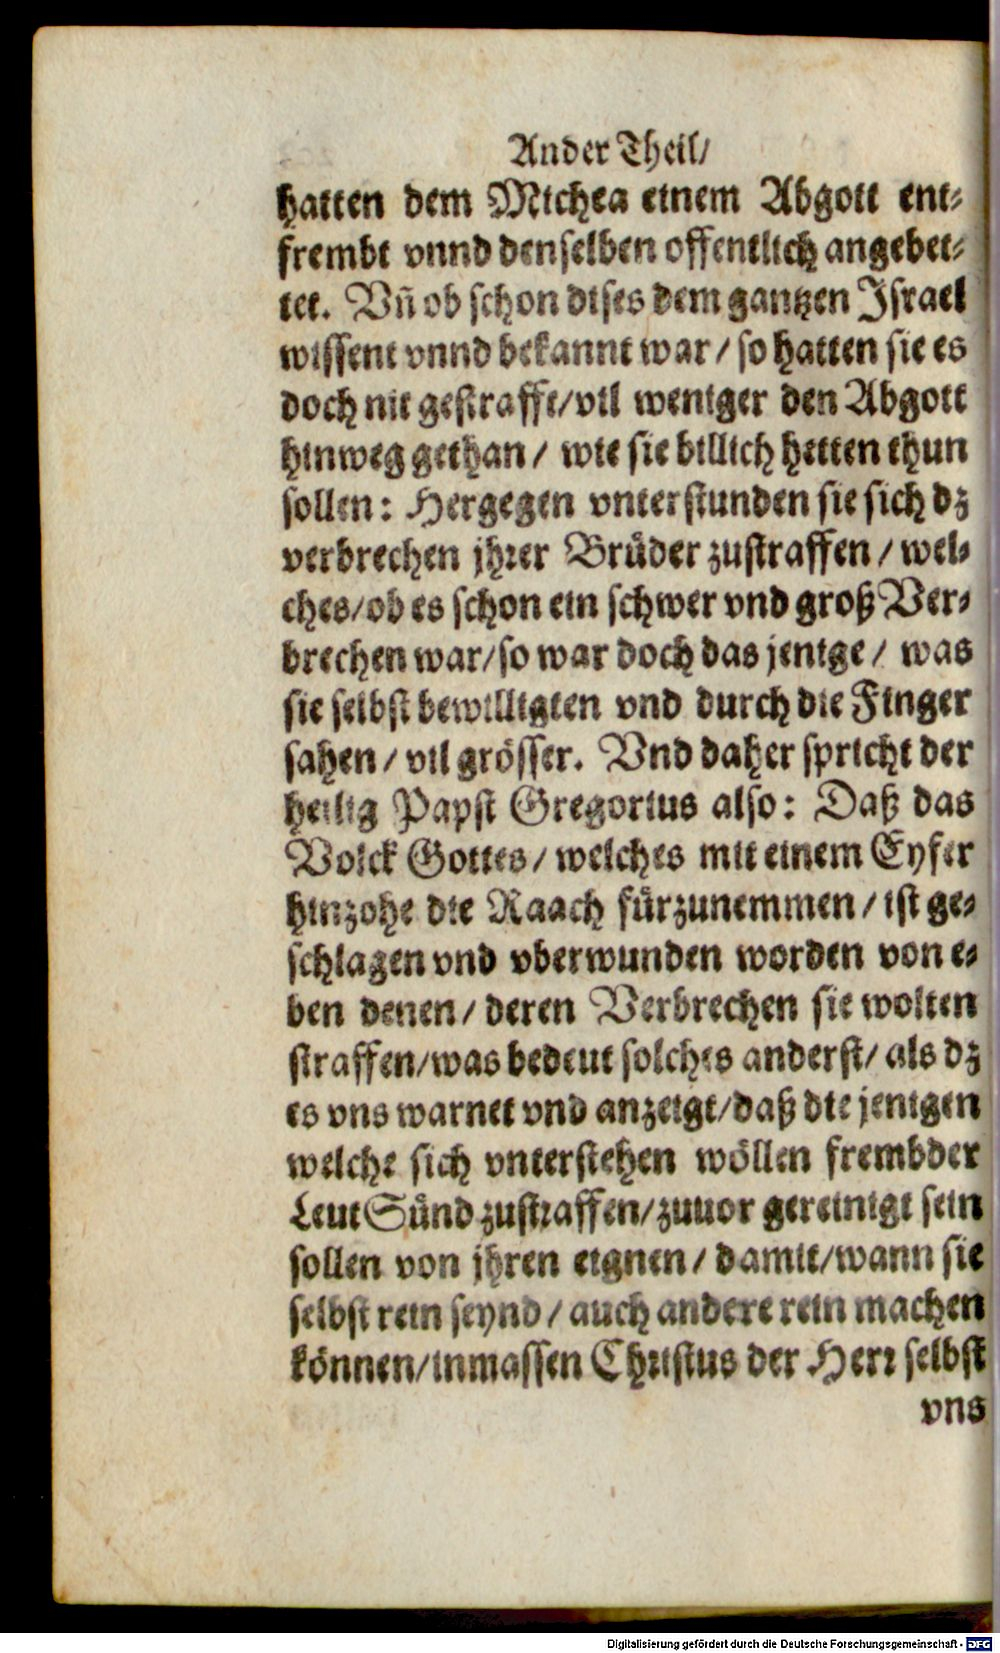 Ander Theil/
hatten dem Michea einem Abgott ent-
frembt vnnd denselben offentlich angebet-
tet. Vñ ob schon dises dem gantzen Israel
wissent vnnd bekannt war / so hatten sie es
doch nit gestrafft/vil weniger den Abgott
hinweg gethan / wie sie billich hetten thun
sollen: Hergegen vnterstunden sie sich dz
verbrechen jhrer Brüder zustraffen / wel-
ches/ob es schon ein schwer vnd groß Ver-
brechen war/so war doch das jenige / was
sie selbst bewilligten vnd durch die Finger
sahen / vil grösser. Vnd daher spricht der
heilig Papst Gregorius also: Daß das
Volck Gottes / welches mit einem Eyfer
hinzohe die Raach fürzunemmen / ist ge-
schlagen vnd vberwunden worden von e-
ben denen / deren Verbrechen sie wolten
straffen/was bedeut solches anderst/ als dz
es vns warnet vnd anzeigt/daß die jenigen
welche sich vnterstehen wöllen frembder
Leut Sünd zustraffen/zuuor gereinigt sein
sollen von jhren eignen / damit/wann sie
selbst rein seynd / auch andere rein machen
können/inmassen Christus der Herr selbst
vns
Digitalisierung gefördert durch die Deutsche Forschungsgemeinschaft - DFG